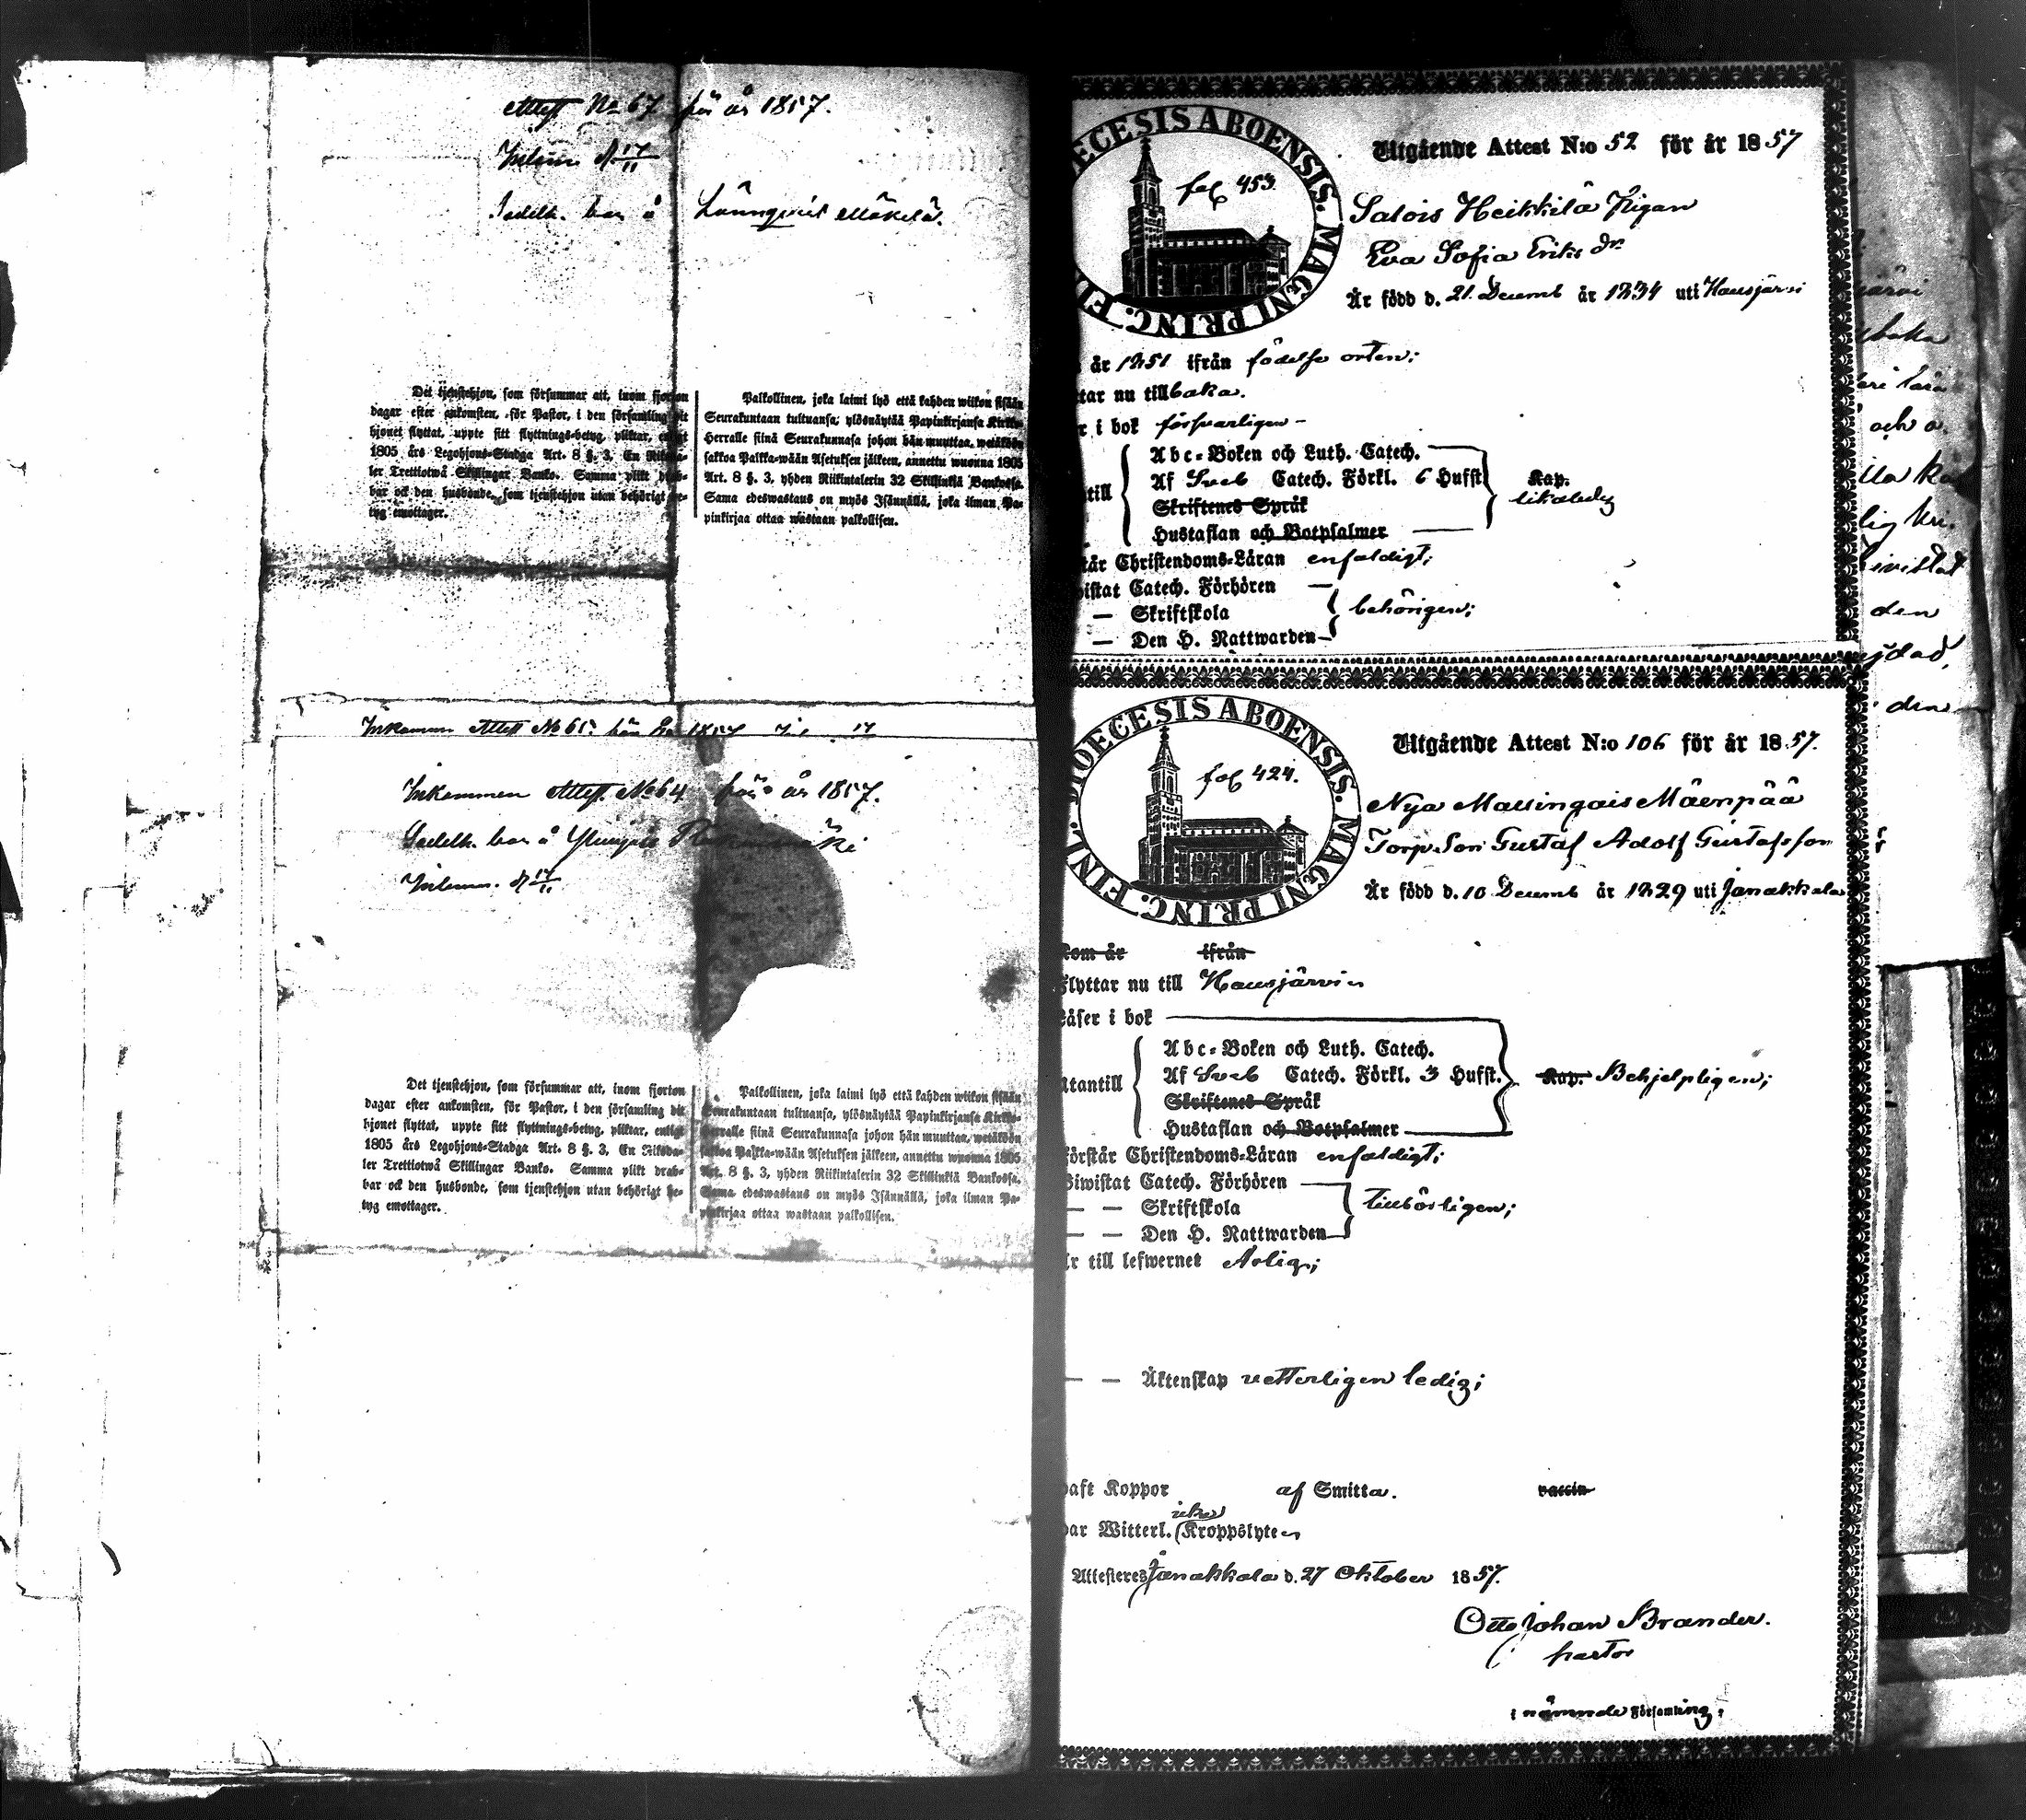 Attest No 67 för år 1857.
Inlemn. d 17/11
Sedelh. bor å Lönnqvist Mäkelä.
Det tjenstehjon, som försummar att, inom fjorton
dagar efter ankomsten, för Pastor, i den församling dit
hjonet flyttat, uppte sitt flyttnings-betyg, pliktar, enligt
1805 års Legohjons-Stadga Art. 8 §. 3, En Riksda-
ler Trettiotwå Skillingar Banko. Samma plikt drab-
bar ock den husbonde, som tjenstehjon utan behörigt be-
tyg emottager.
Palkollinen, joka laimi lyö että kahden wiikon sisään
Seurakuntaan tultuansa, ylösnäytää Papinkirjansa Kirkko-
Herralle siinä Seurakunnasa johon hän muuttaa, wetäköön
sakkoa Palkka-wään Asetuksen jälkeen, annettu wuonna 1805
Art. 8 §. 3, yhden Riikintalerin 32 Skillinkiä Bankossa.
Sama edeswastaus on myös Isännällä, joka ilman Pa-
pinkirjaa ottaa wastaan palkollisen.
Inkommen Attest No 65 för år 1857
Inkommen Attest No 64 för år 1857.
Sedelh. bor å
Inlemn. d 17/11
Det tjenstehjon, som försummar att, inom fjorton
dagar efter ankomsten, för Pastor, i den församling dit
hjonet flyttat, uppte sitt flyttnings-betyg, pliktar, enligt
1805 års Legohjons-Stadga Art. 8 §. 3, En Riksda-
ler Trettiotwå Skillingar Banko. Samma plikt drab-
bar ock den husbonde, som tjenstehjon utan behörigt be-
tyg emottager.
Palkollinen, joka laimi lyö että kahden wiikon sisään
Seurakuntaan tultuansa, ylösnäytää Papinkirjansa Kirkko-
Herralle siinä Seurakunnasa johon hän muuttaa, wetäköön
sakkoa Palkka-wään Asetuksen jälkeen, annettu wuonna 1805
Art. 8 §. 3, yhden Riikintalerin 32 Skillinkiä Bankossa.
Sama edeswastaus on myös Isännällä, joka ilman Pa-
pinkirjaa ottaa wastaan palkollisen.
DIOECESIS ABOENSIS. MAGNI PRINC. FINL.
fol 453.
Utgående Attest N:o 52 för år 1857
Salois Heikkilä Pigan
Eva Sofia Eriks dr
Är född d. 21 Decemb år 1834 uti Hausjärvi
år 1851 ifrån födelse orten;
tar nu tillbaka.
r i bok försvarligen
Abc-Boken och Luth. Catech.
till Af Sveb Catech. Förkl. 6 Hufst. Kap. likaledes
Skriftenes Språk
Hustaflan och Botpsalmer
tår Christendoms-Läran enfaldigt;
istat Catech. Förhören
— Skriftskola behörigen;
— Den H. Nattwarden
DIOECESIS ABOENSIS. MAGNI PRINC. FINL.
fol 424.
Utgående Attest N:o 106 för år 1857.
Nya Mallingais Mäenpää
Torp. Son Gustaf Adolf Gustafsson
Är född d. 10 Decemb år 1829 uti Janakkala
Kom år ifrån
Flyttar nu till Hausjärvi
Läser i bok
Abc-Boken och Luth. Catech.
Utantill Af Sveb Catech. Förkl. 3 Hufst. Kap. Behjelpligen;
Skriftenes Språk
Hustaflan och Botpsalmer
Förstår Christendoms-Läran enfaldigt;
Biwistat Catech. Förhören
— — Skriftskola tillbörligen;
— — Den H. Nattwarden
Är till lefwernet Ärlig;
— — Äktenskap vetterligen ledig;
haft Koppor af Smitta. vaccin
har Witterl. icke Kroppslyte
Attesteres Janakkala d. 27 Oktober 1857.
Otto Johan Brander.
pastor
i nämnde Församling.
och a.
den
den